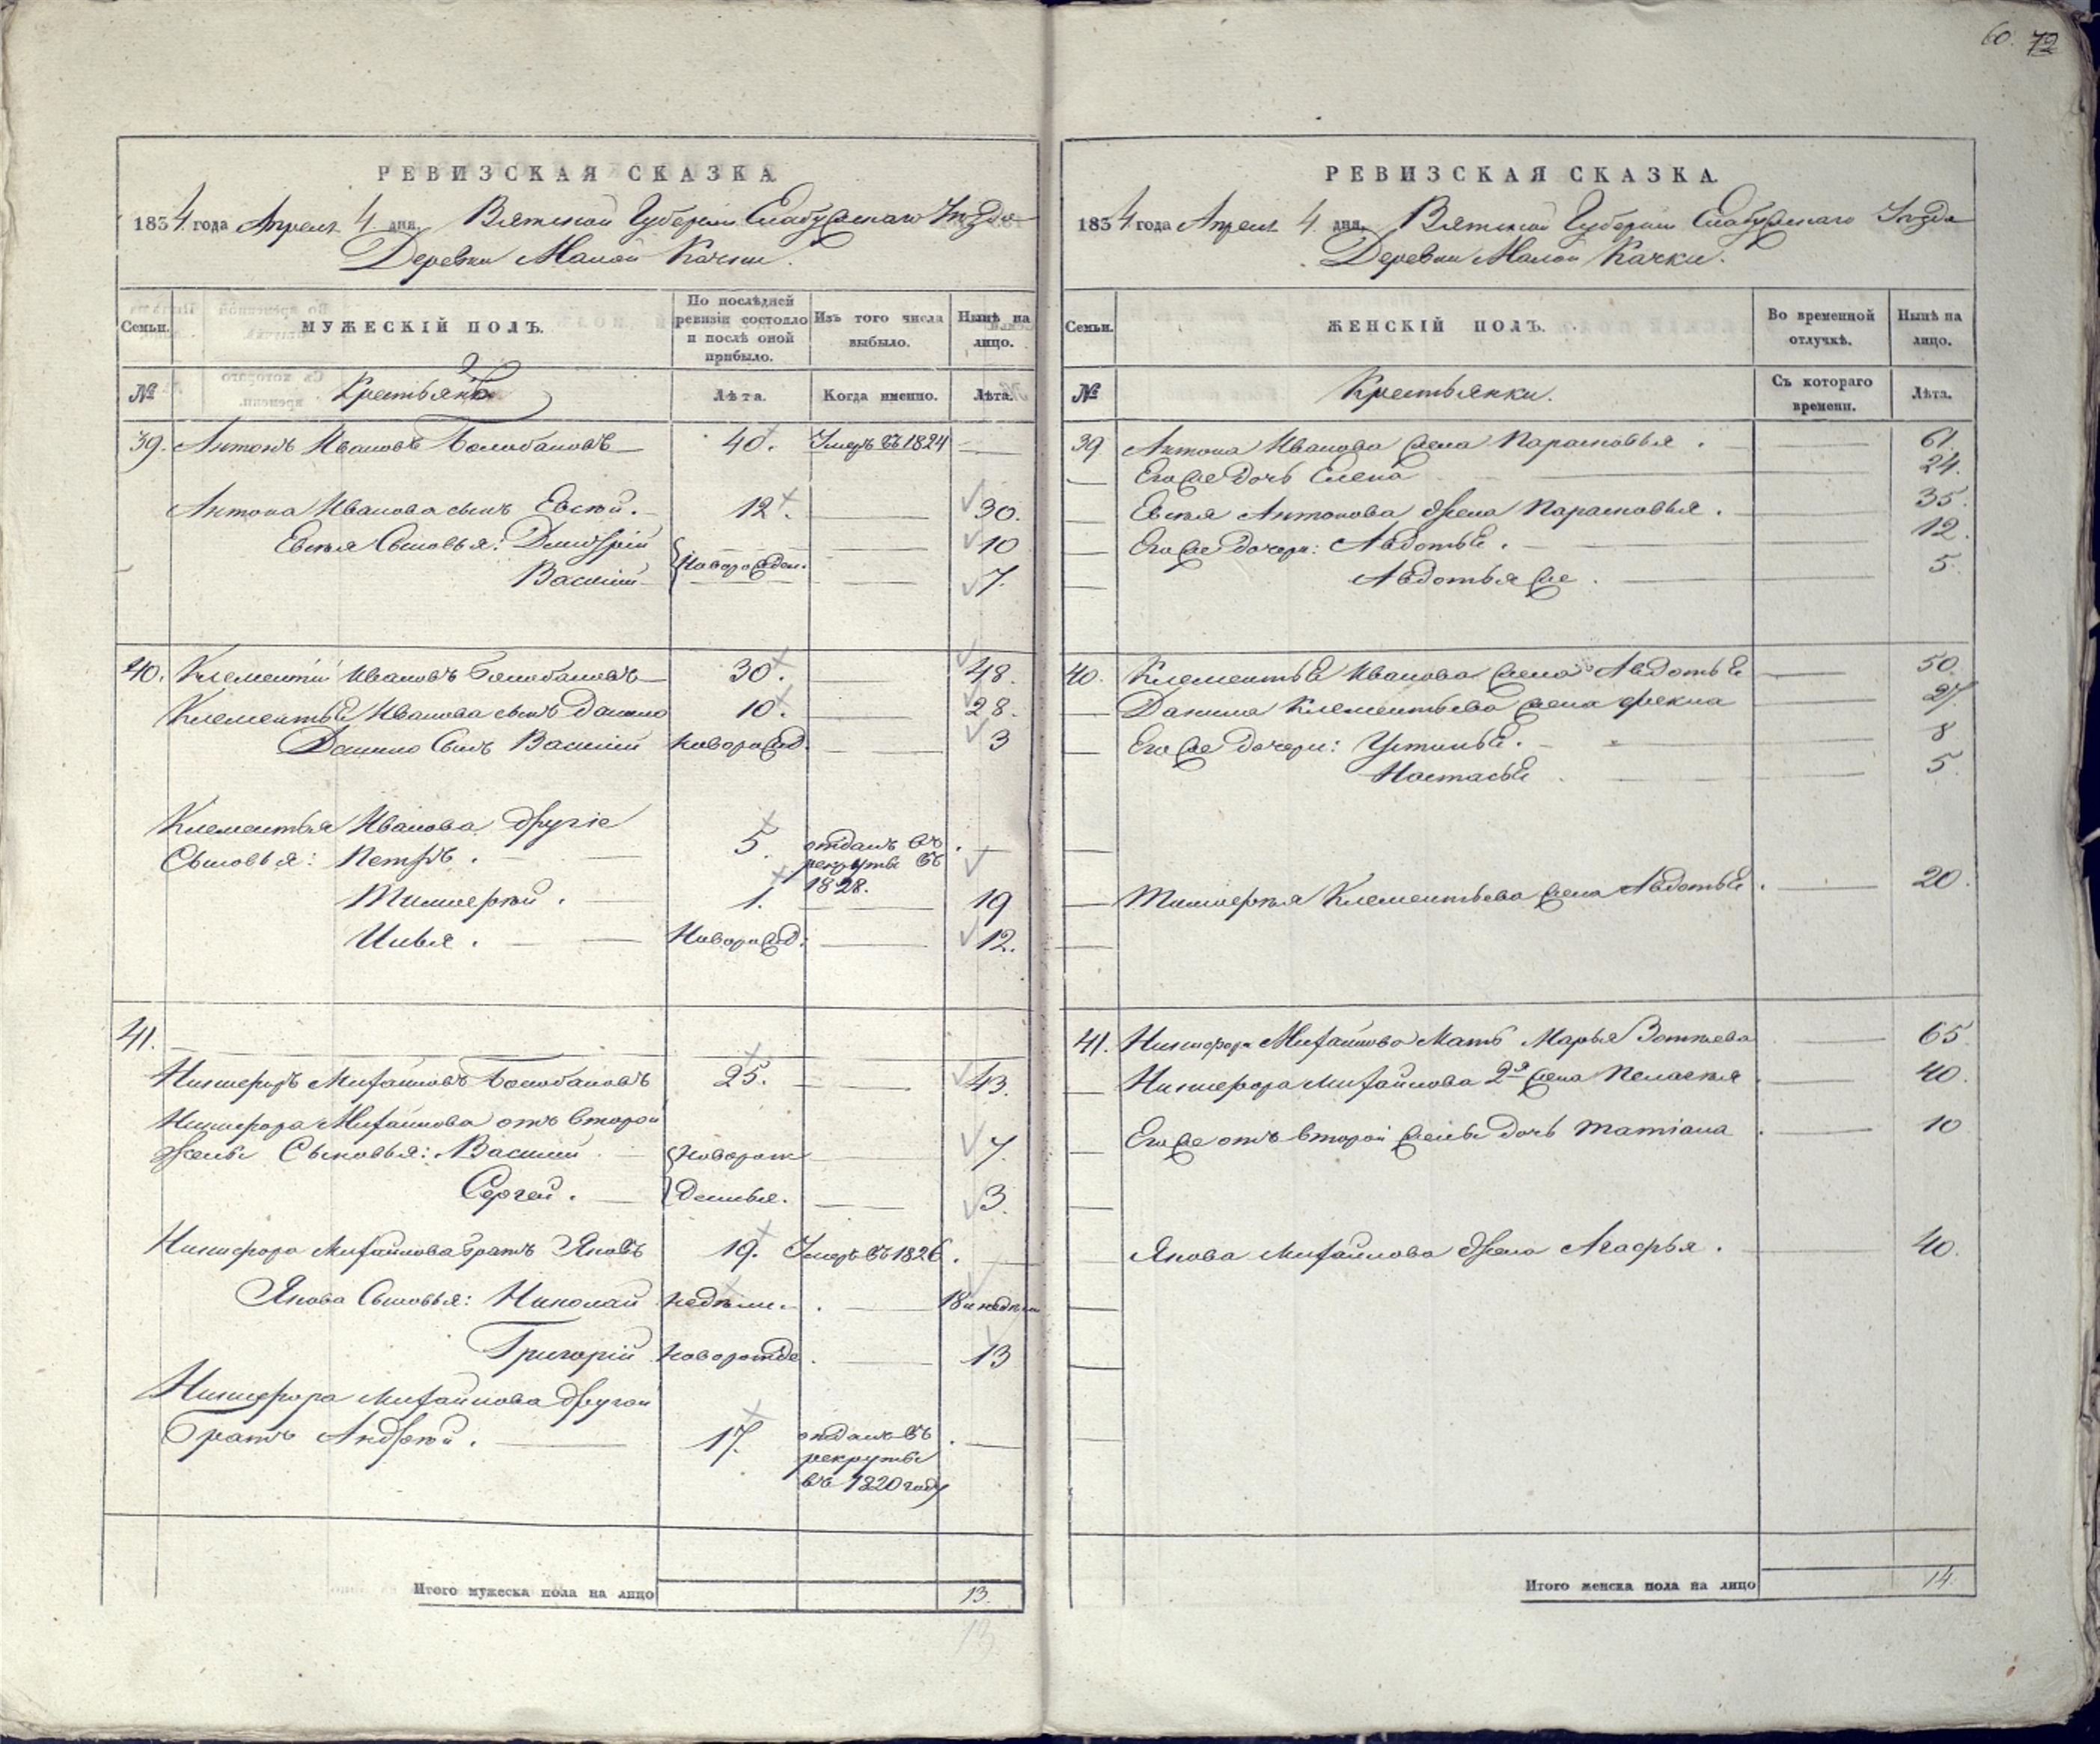 60. 72
РЕВИЗСКАЯ СКАЗКА
1834 года Апреля 4 дня. Вятской Губернии Елабужскаго Уезда
Деревни Малой Качки.
Семьи. МУЖЕСКІЙ ПОЛЪ. По послѣдней ревизіи состояло и послѣ оной прибыло. Изъ того числа выбыло. Нынѣ на лицо.
№ Крестьянъ Лѣта. Когда именно. Лѣта.
39. Антонъ Ивановъ Болобановъ 40. Умеръ въ 1824
Антона Иванова сынъ Евсѣй. 12. 30.
Евсѣя Сыновья: Дмитрій 10
Новорожден.
Василій 7.
40. Клементій Ивановъ Болобановъ 30. 48.
Клементья Иванова сынъ Данило 10. 28.
Данило Сынъ ВасилійНоворожд. 3
Клементья Иванова другіе
Сыновья: Петръ. 5. отданъ въ
рекруты въ
1828.
Тимоѳей. 1. 19
Илья.Новорожд: 12.
41.
Никифоръ Михайловъ Болобановъ 25. 43.
Никифора Михайлова отъ второй
жены Сыновья: Василий Новорож 7.
Сергей. денные. 3.
Никифора Михайлова братъ Яковъ 19. Умеръ въ 1826.
Якова Сыновья: Николай недѣли. 18 и недѣли
Григорій новорожде 13
Никифора Михайлова другой
Братъ Андрѣй. 17. отданъ въ
рекруты
въ 1820 году
Итого мужеска пола на лицо 13.
13
РЕВИЗСКАЯ СКАЗКА.
1834 года Апреля 4 дня. Вятской Губернии Елабужскаго Уезда
Деревни Малой Качки.
Семьи. ЖЕНСКІЙ ПОЛЪ. Во временной отлучкѣ. Нынѣ на лицо.
№ Крестьянки. Съ котораго времени. Лѣта.
39 Антона Иванова жена Парасковья. 61
Его же дочь Елена 24.
Евсѣя Антонова жена Парасковья. 35.
Его же дочери: Авдотья. 12.
Авдотья же. 5.
40. Клементья Иванова жена Авдотья 50.
Данила Клементьева жена Фекла 27.
Его же дочери: Устинья. 8
Настасья 5.
Тимоѳея Клементьева жена Авдотья. 20.
41. Никифора Михайлова Мать Марья 65
Никифора Михайлова 2я жена Пелагея 40.
Его же отъ второй жены дочь Татіана 10
Якова Михайлова жена Агафья. 40.
Итого женска пола на лицо 14.